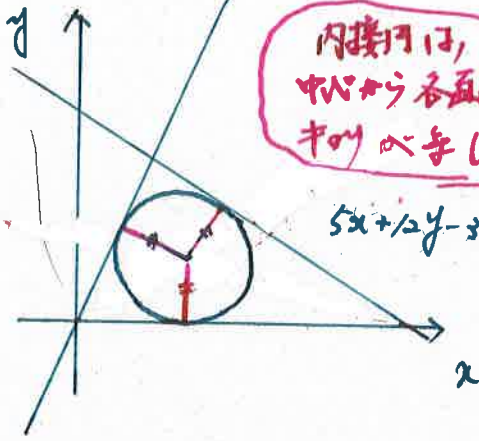 y
内接円は,
中心から各直
キョリが等し
5x+12y-3
x